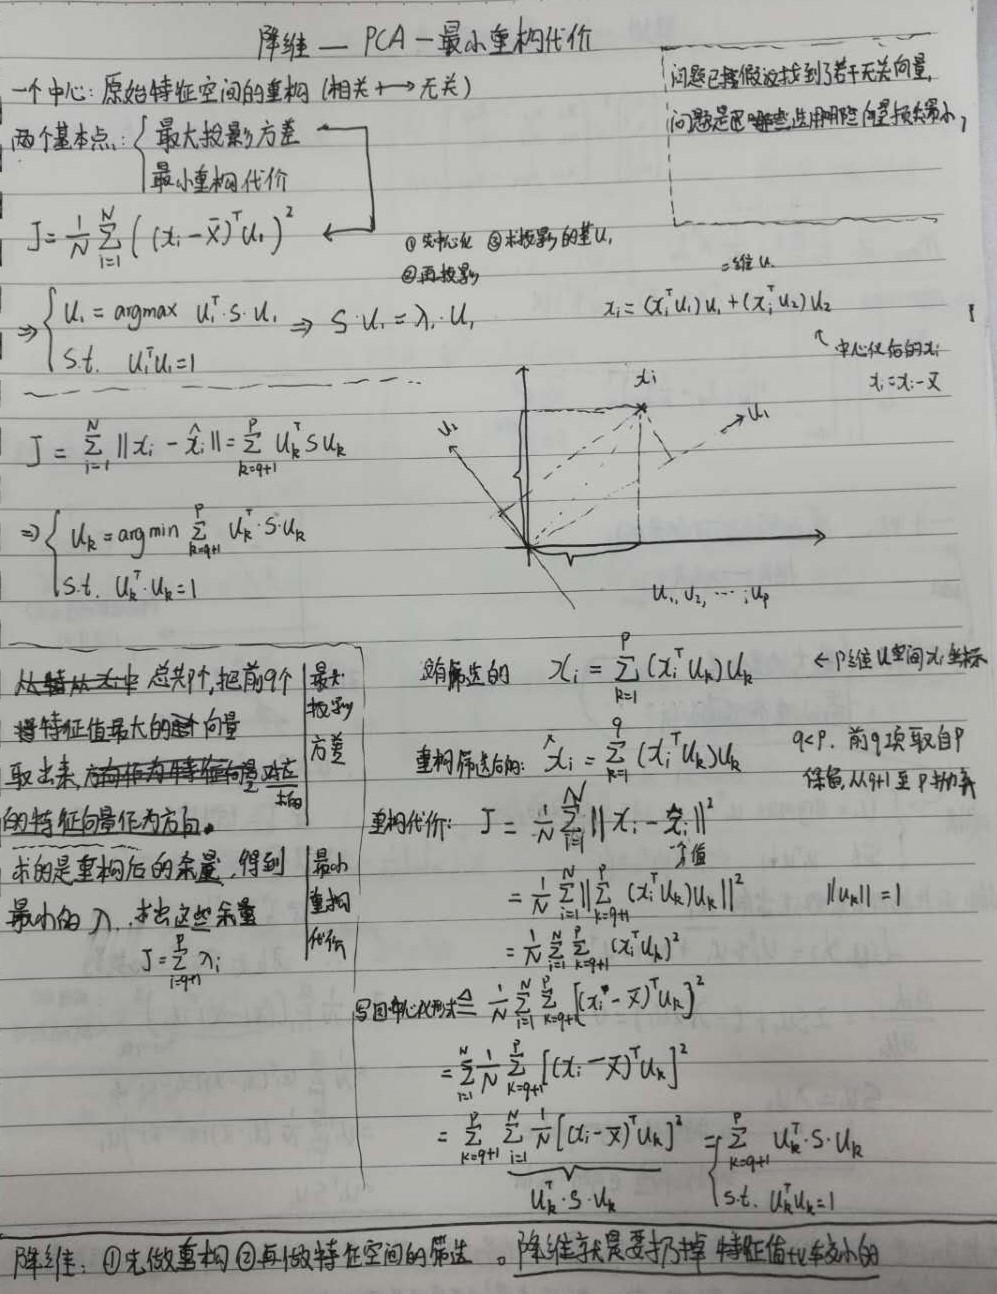 降维 — PCA — 最小重构代价
一个中心: 原始特征空间的重构 (相关 ⟷ 无关)
两个基本点: { 最大投影方差
最小重构代价
问题已接假设找到了若干无关向量,
问题是 选用哪些 向量损失最小,
J = 1/N Σ_{i=1}^{N} ((x_i - x̄)^T u_1)^2
① 先中心化 ③ 求投影的基u_1
② 再投影
⇒ { u_1 = argmax u_1^T·S·u_1 ⇒ S·u_1 = λ_1·u_1
s.t. u_1^T u_1 = 1
二维 u.
x_i = (x_i^T u_1) u_1 + (x_i^T u_2) u_2
↖ 中心化后的x_i
x_i = x_i - x̄
J = Σ_{i=1}^{N} ||x_i - x̂_i|| = Σ_{k=q+1}^{P} u_k^T S u_k
⇒ { u_k = argmin Σ_{k=q+1}^{P} u_k^T·S·u_k
s.t. u_k^T·u_k = 1
x_i
u_2
u_1
u_1, u_2, ⋯, u_p
总共P个, 把前q个
特征值最大的 向量
取出来, 对应
的特征向量作为方向。
最大
投影
方差
求的是重构后的余量, 得到
最小的 λ, 求出这些余量
J = Σ_{i=q+1}^{P} λ_i
最小
重构
代价
没有筛选的 x_i = Σ_{k=1}^{P} (x_i^T u_k) u_k ← P维u空间x_i坐标
重构筛选后的: x̂_i = Σ_{k=1}^{q} (x_i^T u_k) u_k
q<P. 前q项取自P
保留, 从q+1至P抛弃
重构代价: J = 1/N Σ_{i=1}^{N} ||x_i - x̂_i||^2
= 1/N Σ_{i=1}^{N} ||Σ_{k=q+1}^{P} (x_i^T u_k) u_k||^2 ||u_k|| = 1
= 1/N Σ_{i=1}^{N} Σ_{k=q+1}^{P} (x_i^T u_k)^2
写回中心化形式 ≜ 1/N Σ_{i=1}^{N} Σ_{k=q+1}^{P} [(x_i - x̄)^T u_k]^2
= Σ_{i=1}^{N} 1/N Σ_{k=q+1}^{P} [(x_i - x̄)^T u_k]^2
= Σ_{k=q+1}^{P} Σ_{i=1}^{N} 1/N [(x_i - x̄)^T u_k]^2 = { Σ_{k=q+1}^{P} u_k^T·S·u_k
u_k^T·S·u_k
s.t. u_k^T u_k = 1
降维: ① 先做重构 ② 再做特征空间的筛选 。降维就是要扔掉 特征值比较小的